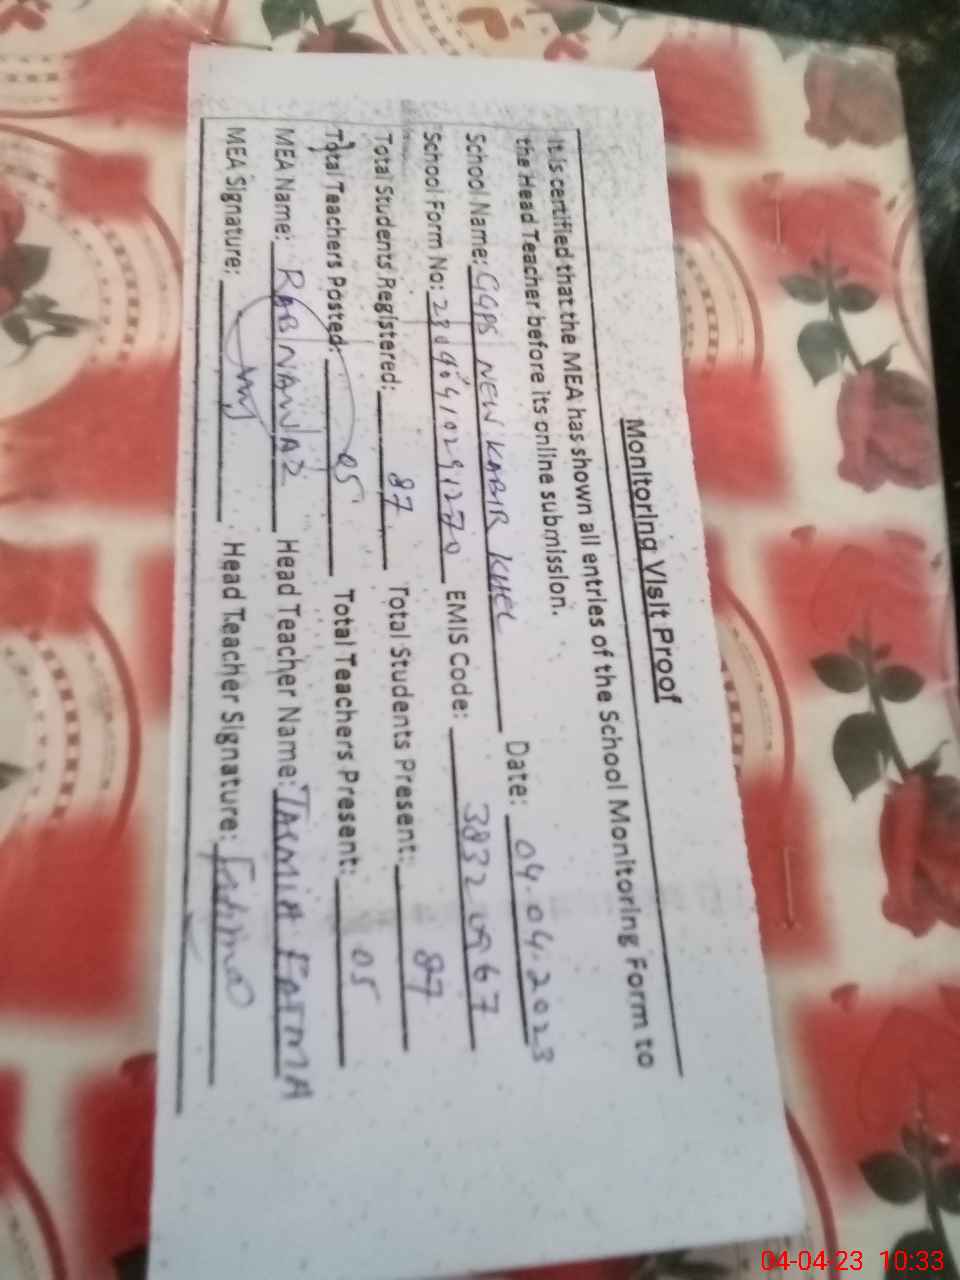 Monitoring Visit Proof
It is certified that the MEA has shown all entries of the School Monitoring Form to
the Head Teacher before its online submission.
Date: 04.04.2023
School Name: GGPS NEW KABIR KHEL
School Form No: EMIS Code:
Total Students Registered: 87 Total Students Present: 87
Total Teachers Posted: 05 Total Teachers Present: 05
MEA Name: RAB NAWAZ Head Teacher Name: FATMA
MEA Signature: Head Teacher Signature: Fatima
04-04-23 10:33